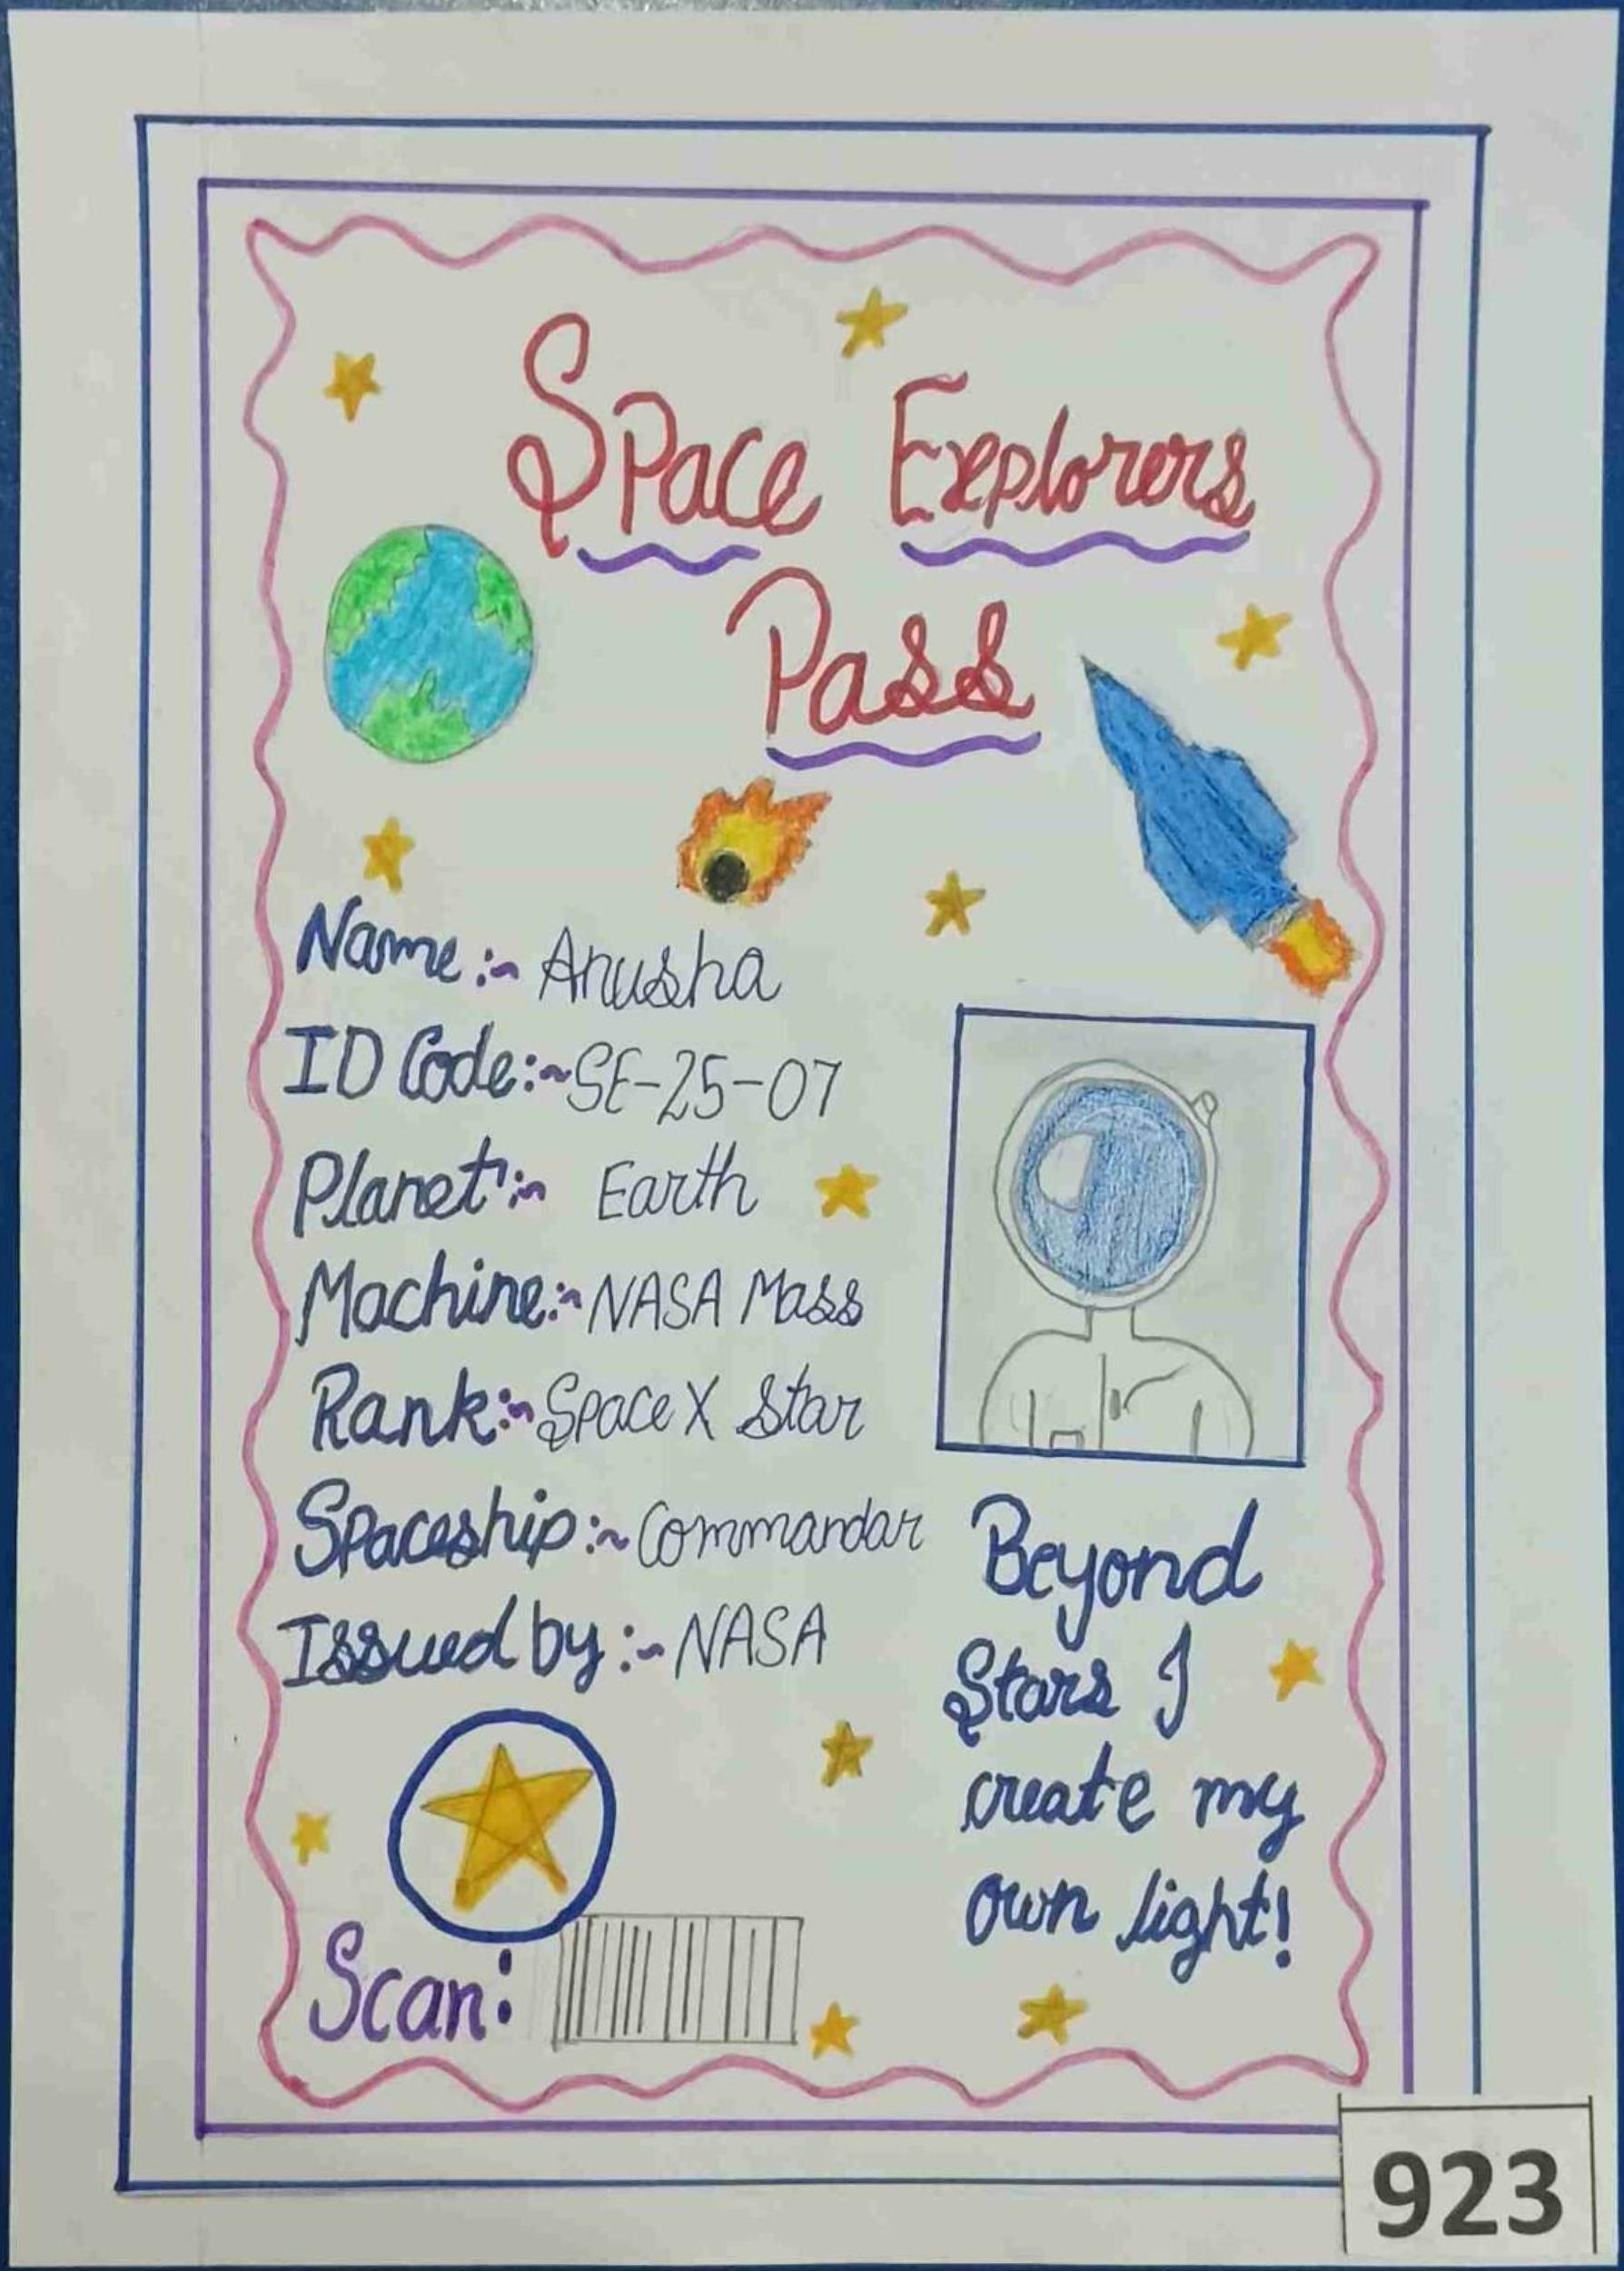 Space Explorers
Pass
Name:~ Anusha
ID Code:~ SE-25-07
Planet:~ Earth
Machine:~ NASA Mass
Rank:~ SpaceX Star
Spaceship:~ Commandar
Issued by:~ NASA
Beyond
Stars I
create my
own light!
Scan:
923